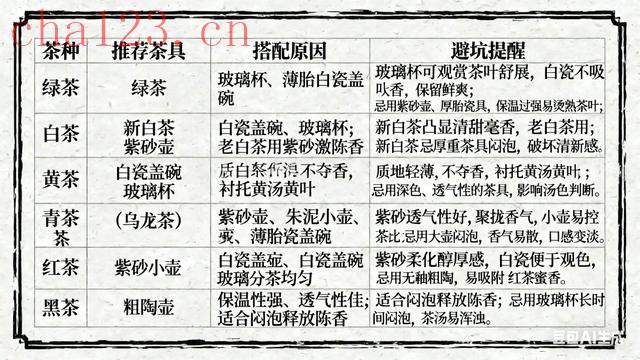 cha123.cn
茶种 推荐茶具 搭配原因 避坑提醒
绿茶 绿茶 玻璃杯、薄胎白瓷盖碗 玻璃杯可观赏茶叶舒展，白瓷不吸
保留鲜爽；
忌用紫砂壶、厚胎瓷具，保温过强易烫熟茶叶；
白茶 新白茶
紫砂壶
白瓷盖碗、玻璃杯；
老白茶用紫砂激陈香
新白茶凸显清甜毫香，老白茶用；
新白茶忌厚重茶具闷泡，破坏清新感。
黄茶 白瓷盖碗
玻璃杯
不夺香，
衬托黄汤黄叶
质地轻薄，不夺香，衬托黄汤黄叶；
忌用深色、透气性的茶具，影响汤色判断。
青茶
茶
（乌龙茶）
紫砂壶、朱泥小壶、
薄胎瓷盖碗
紫砂透气性好，聚拢香气，小壶易控
忌用大壶闷泡，香气易散，口感变淡。
红茶 紫砂小壶
白瓷盖壶、白瓷盖碗
玻璃分茶均匀
紫砂柔化醇厚感，白瓷便于观色，
忌用无釉粗陶，易吸附 红茶蜜香。
黑茶 粗陶壶
保温性强、透气性佳；
适合闷泡释放陈香
适合闷泡释放陈香；忌用玻璃杯长时
间闷泡，茶汤易浑浊。